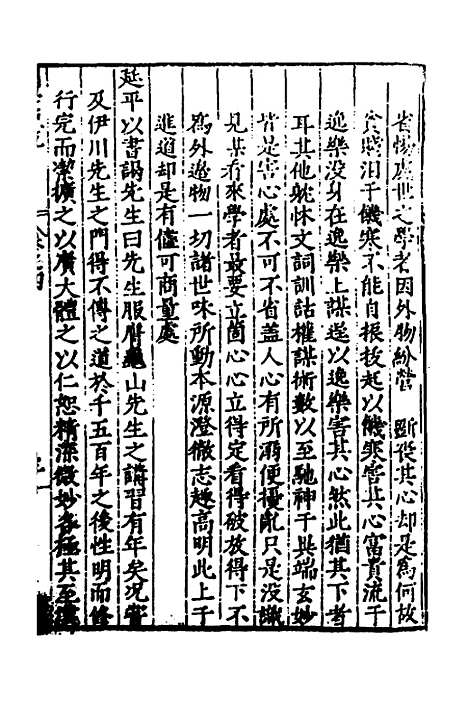 省惕處世之學者因外物紛營斷喪其心却是為何故
貧賤汨于饑寒不能自振拔起以饑寒害其心富貴流于
逸樂没身在逸樂上謀遂以逸樂害其心然此猶其下者
耳其他躭怵文詞訓詁權謀術數以至馳神于異端玄妙
皆是害心處不可不省盖人心有所溺便擾亂只是没識
見某看來學者最要立箇心心立得定看得破放得下不
為外邊物一切諸世味所動本源澄徹志趣高明此上于
進道却是有儘可商量處
延平以書謁先生曰先生服膺龜山先生之講習有年矣况嘗
及伊川先生之門得不傳之道於千五百年之後性明而修
行完而潔擴之以廣大體之以仁恕精深微妙各極其至漢